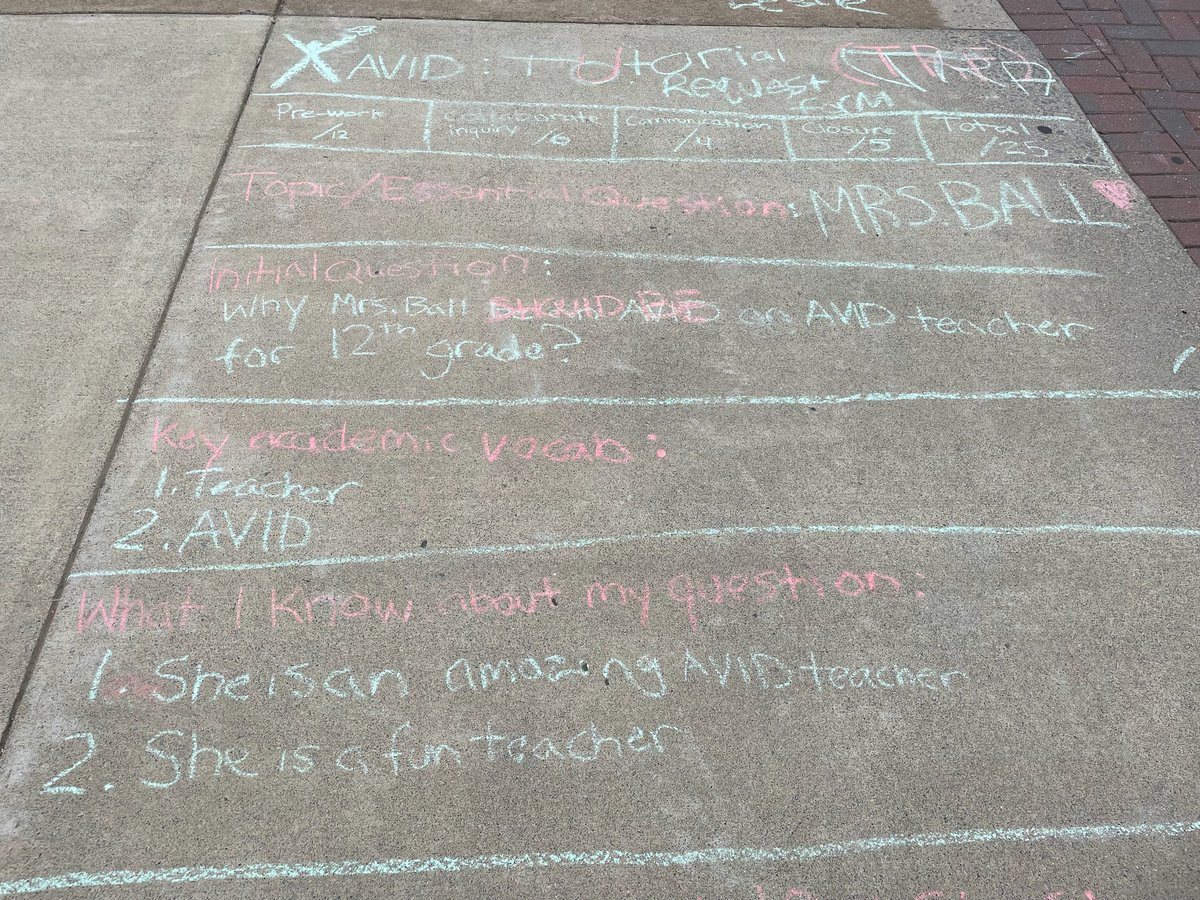 X AVID: Tutorial
Request
Form
Pre-work
/12
Collaborate
inquiry /6
Communication
/4
Closure
/5
Total
/25
Topic/Essential Question: MRS. BALL
Initial Question:
Why Mrs. Ball an AVID teacher
for 12th grade?
Key academic vocab:
1. Teacher
2. AVID
What I Know about my question:
1. She is an amazing AVID teacher
2. She is a fun teacher